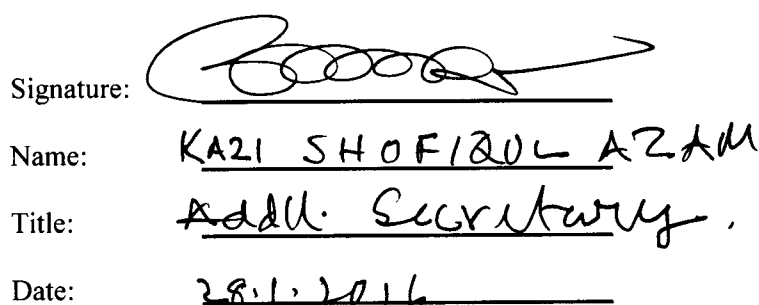 Signature:
Name: KAZI SHOFIQUL AZAM
Title: Addl. Secretary.
Date: 28.1.2016